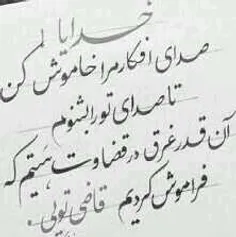 خدایا
صدای افکار مرا خاموش کن
تا صدای تو را بشنوم
آن قدر غرق در قضاوت هستیم که
فراموش کردیم قاضی تویی.